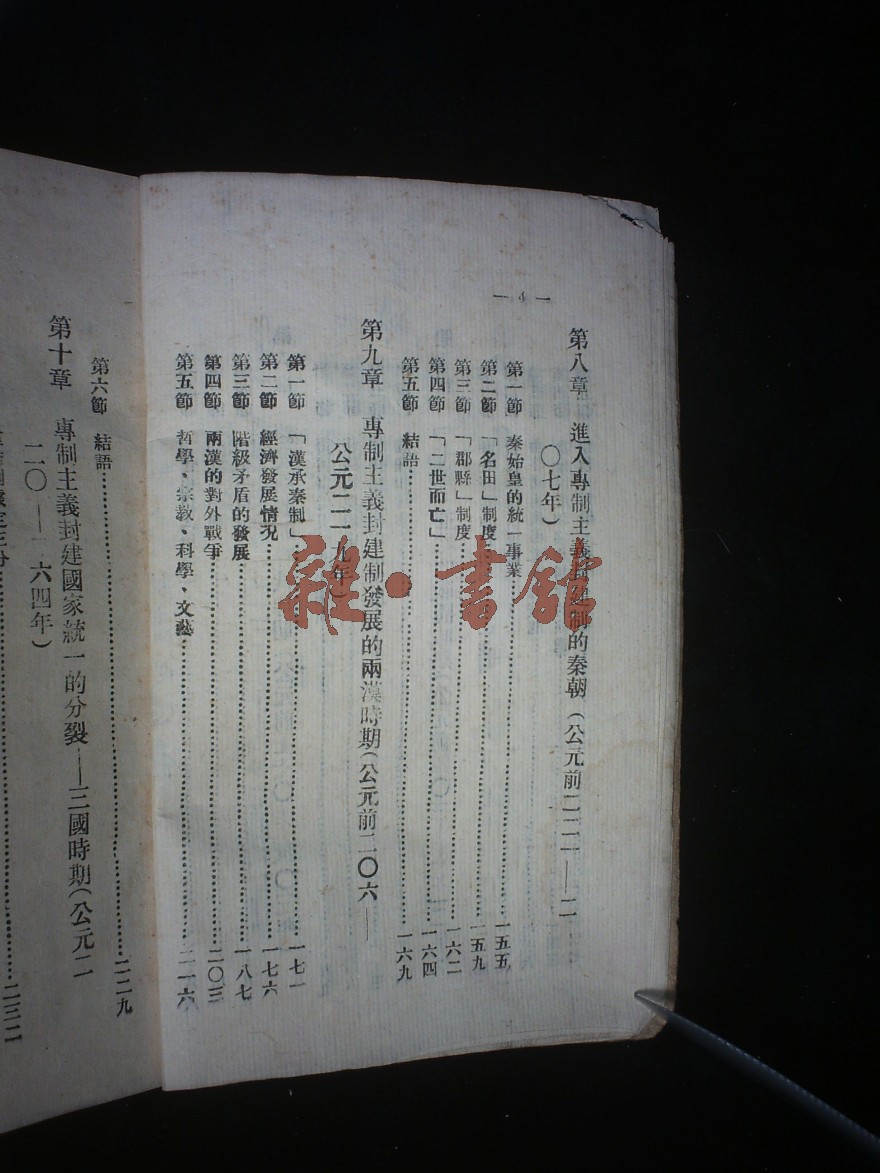 — 4 —
第八章 進入專制主義封建制的秦朝（公元前二二一——二
〇七年）
第一節 秦始皇的統一事業……一五五
第二節 「名田」制度……一五九
第三節 「郡縣」制度……一六二
第四節 「二世而亡」……一六四
第五節 結語……一六九
第九章 專制主義封建制發展的兩漢時期（公元前二〇六——
公元二一九年）
第一節 「漢承秦制」……一七一
第二節 經濟發展情況……一七六
第三節 階級矛盾的發展……一八七
第四節 兩漢的對外戰爭……二〇三
第五節 哲學、宗教、科學、文藝……二一六
第六節 結語……二二九
第十章 專制主義封建國家統一的分裂——三國時期（公元二
二〇——二六四年）
……二三二
雜·書館